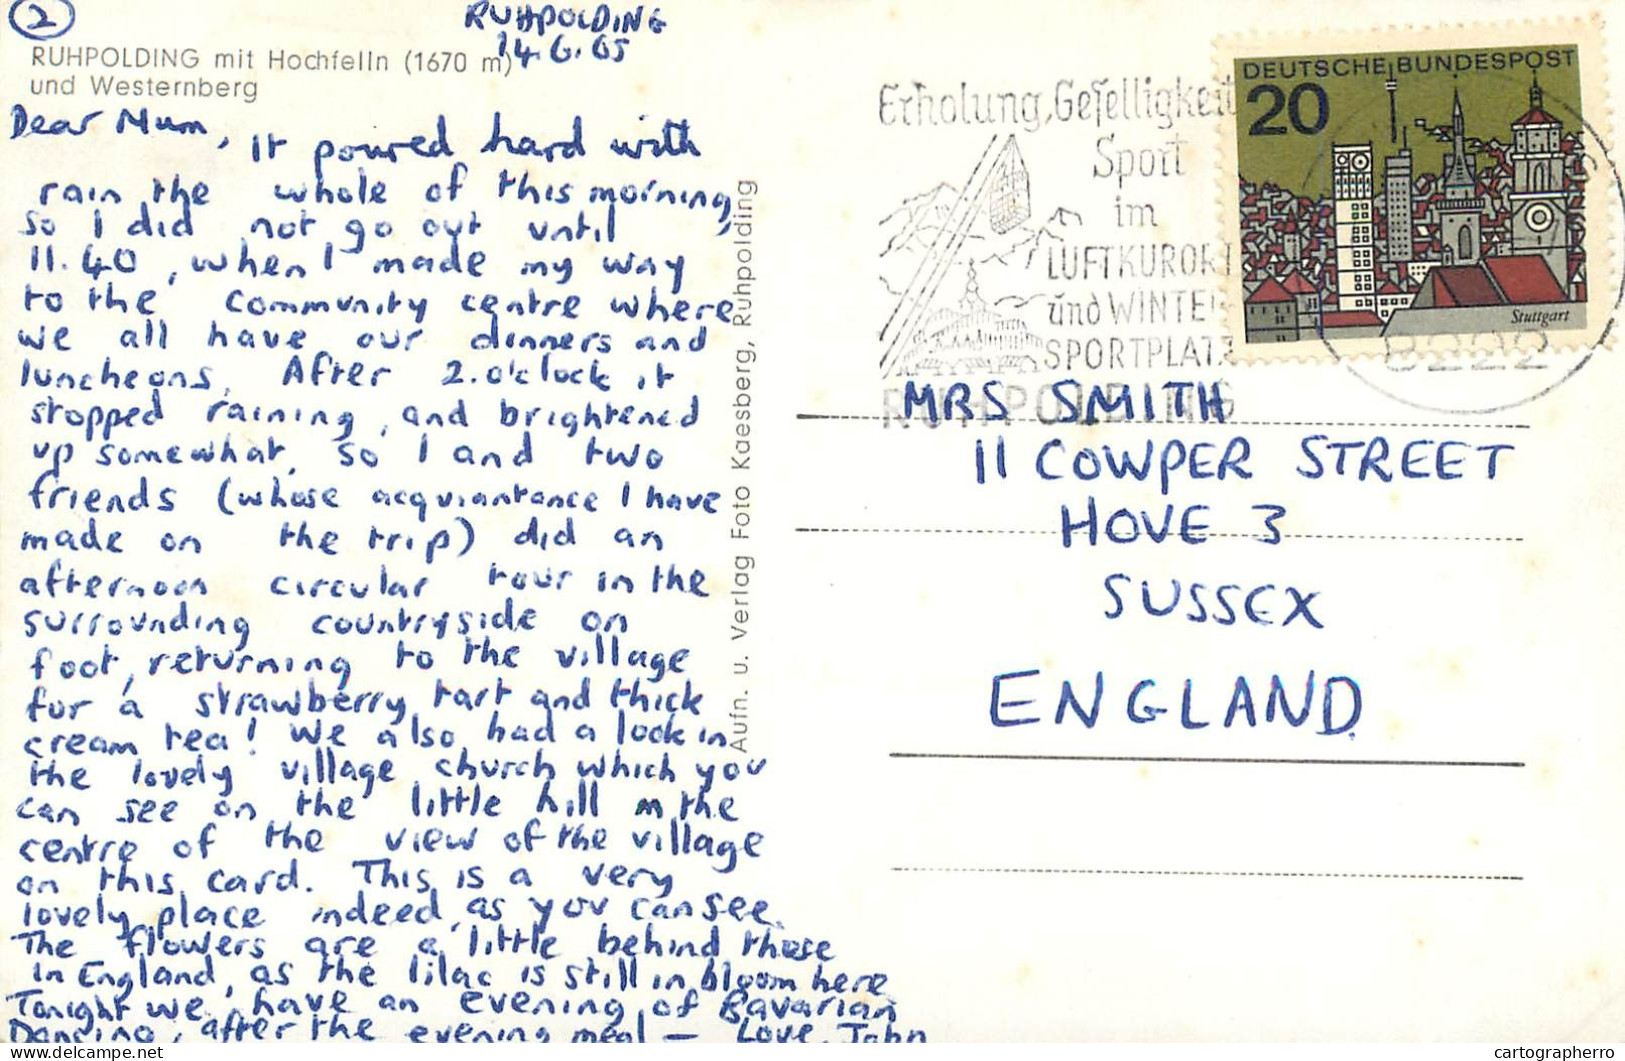 2
RUHPOLDING
14.6.65
RUHPOLDING mit Hochfelln (1670 m)
und Westernberg
Dear Mum,
It poured hard with
rain the whole of this morning,
so I did not go out until
11.40, when I made my way
to the community centre where
we all have our dinners and
luncheons. After 2.o'clock it
stopped raining, and brightened
up somewhat, so I and two
friends (whose acquiantance I have
made on the trip) did an
afternoon circular tour in the
surrounding countryside on
foot, returning to the village
for a strawberry tart and thick
cream tea! We also had a look in
the lovely village church which you
can see on the little hill in the
centre of the view of the village
on this card. This is a very
lovely place indeed, as you can see.
The flowers are a little behind those
in England, as the lilac is still in bloom here
Tonight we have an evening of Bavarian
Dancing, after the evening meal — Love, John
Aufn. u. Verlag Foto Kaesberg, Ruhpolding
Erholung, Geselligkeit
Sport
im
LUFTKURORT
und WINTER
SPORTPLATZ
RUHPOLDING
DEUTSCHE BUNDESPOST
20
Stuttgart
8222
MRS SMITH
11 COWPER STREET
HOVE 3
SUSSEX
ENGLAND
cartographerro